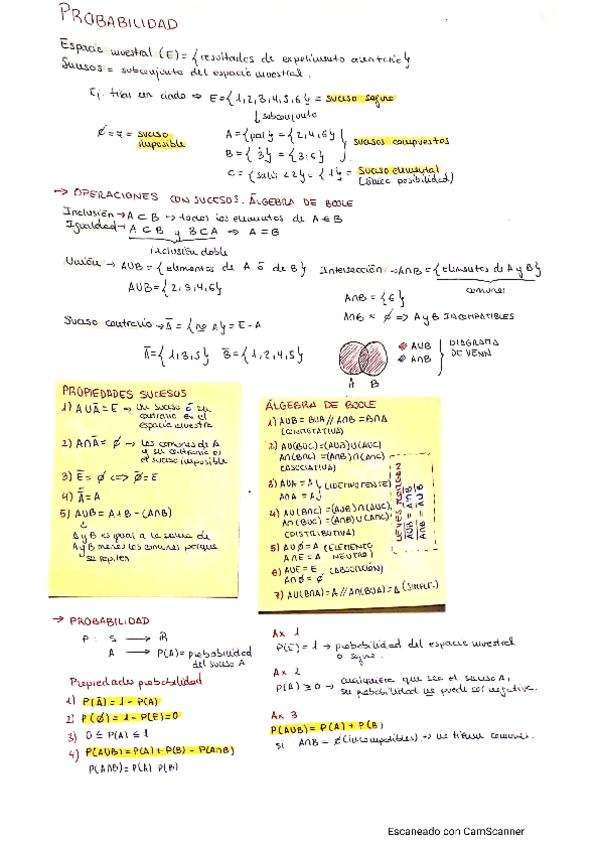 PROBABILIDAD
Espacio muestral (E) = {resultados de experimento aleatorio}
Sucesos = subconjunto del espacio muestral.
Ej. tirar un dado => E = {1,2,3,4,5,6} = suceso seguro
↓ subconjunto
Ø = 7 = suceso imposible
A = {par} = {2,4,6}
B = {3̇} = {3,6}
sucesos compuestos
C = {salir <2} = {1} = suceso elemental
(única posibilidad)
→ OPERACIONES CON SUCESOS. ÁLGEBRA DE BOOLE
Inclusión → A ⊂ B → todos los elementos de A ∈ B
Igualdad → A ⊂ B y B ⊂ A => A = B
inclusión doble
Unión → AUB = {elementos de A ó de B}
AUB = {2,3,4,6}
Intersección → A∩B = {elementos de A y B}
comunes
A∩B = {6}
A∩B = Ø => A y B INCOMPATIBLES
Suceso contrario → Ā = {no A} = E - A
Ā = {1,3,5} B̄ = {1,2,4,5}
A B
AUB
A∩B
DIAGRAMA DE VENN
PROPIEDADES SUCESOS
1) AUĀ = E → Un suceso ó su
contrario es el
espacio muestra
2) A∩Ā = Ø → Los comunes de A
y su contrario es
el suceso imposible
3) Ē = Ø <=> Ø̄ = E
4) A̿ = A
5) AUB = A + B - (A∩B)
A y B es igual a la suma de
A y B menos los comunes porque
se repiten
ÁLGEBRA DE BOOLE
1) AUB = BUA // A∩B = B∩A
(CONMUTATIVA)
2) AU(BUC) = (AUB)U(AUC)
A∩(B∩C) = (A∩B)∩(A∩C)
(ASOCIATIVA)
3) AUA = A
A∩A = A
(IDEMPOTENTE)
4) AU(B∩C) = (AUB)∩(AUC)
A∩(BUC) = (A∩B)U(A∩C)
(DISTRIBUTIVA)
5) AUØ = A (ELEMENTO
A∩E = A NEUTRO)
6) AUE = E (ABSORCIÓN)
A∩Ø = Ø
7) AU(B∩A) = A // A∩(BUA) = A (SIMPLIF.)
LEYES MORGAN
→ PROBABILIDAD
P: S → R
A → P(A) = probabilidad
del suceso A
Propiedades probabilidad
1) P(Ā) = 1 - P(A)
2) P(Ø) = 1 - P(E) = 0
3) 0 ≤ P(A) ≤ 1
4) P(AUB) = P(A) + P(B) - P(A∩B)
P(A∩B) = P(A) · P(B)
Ax 1
P(E) = 1 → probabilidad del espacio muestral
o seguro.
Ax 2
P(A) ≥ 0 → cualquiera que sea el suceso A,
su probabilidad no puede ser negativa.
Ax 3
P(AUB) = P(A) + P(B)
si A∩B = Ø (incompatibles) → no tienen comunes.
Escaneado con CamScanner